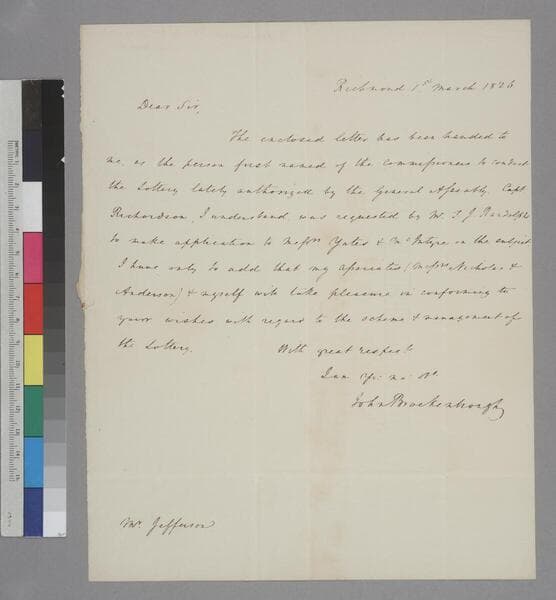 Richmond 1st March 1826
Dear Sir,
The enclosed letter has been handed to
me, as the person first named of the commissioners to conduct
the Lottery lately authorized by the General Assembly. Capt
Richardson, I understand, was requested by Mr. T J Randolph
to make application to Messrs Yates & McIntyre on the subject
I have only to add that my associates (Messrs Nicholas &
Anderson) & myself will take pleasure in conforming to
your wishes with regard to the scheme & management of
the Lottery.
With great respect
I am
John Brockenbrough
Mr Jefferson